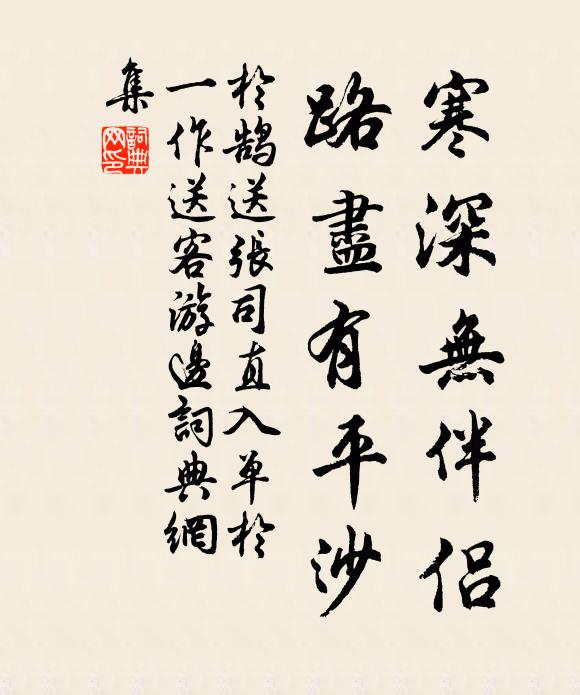 寒深無伴侶
路盡有平沙
於鵠送張司直入單於
一作送客游邊詞典網
集
詞典網印